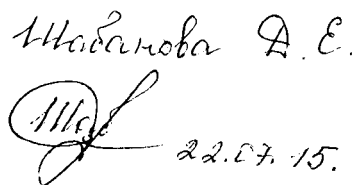 Шабанова Д. Е.
22.07.15.